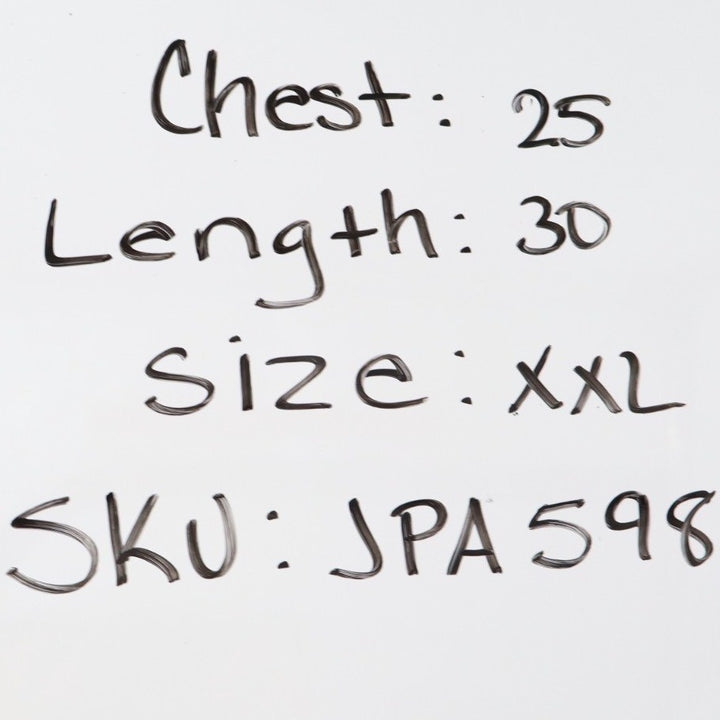 Chest: 25
Length: 30
Size: XXL
SKU: JPA598